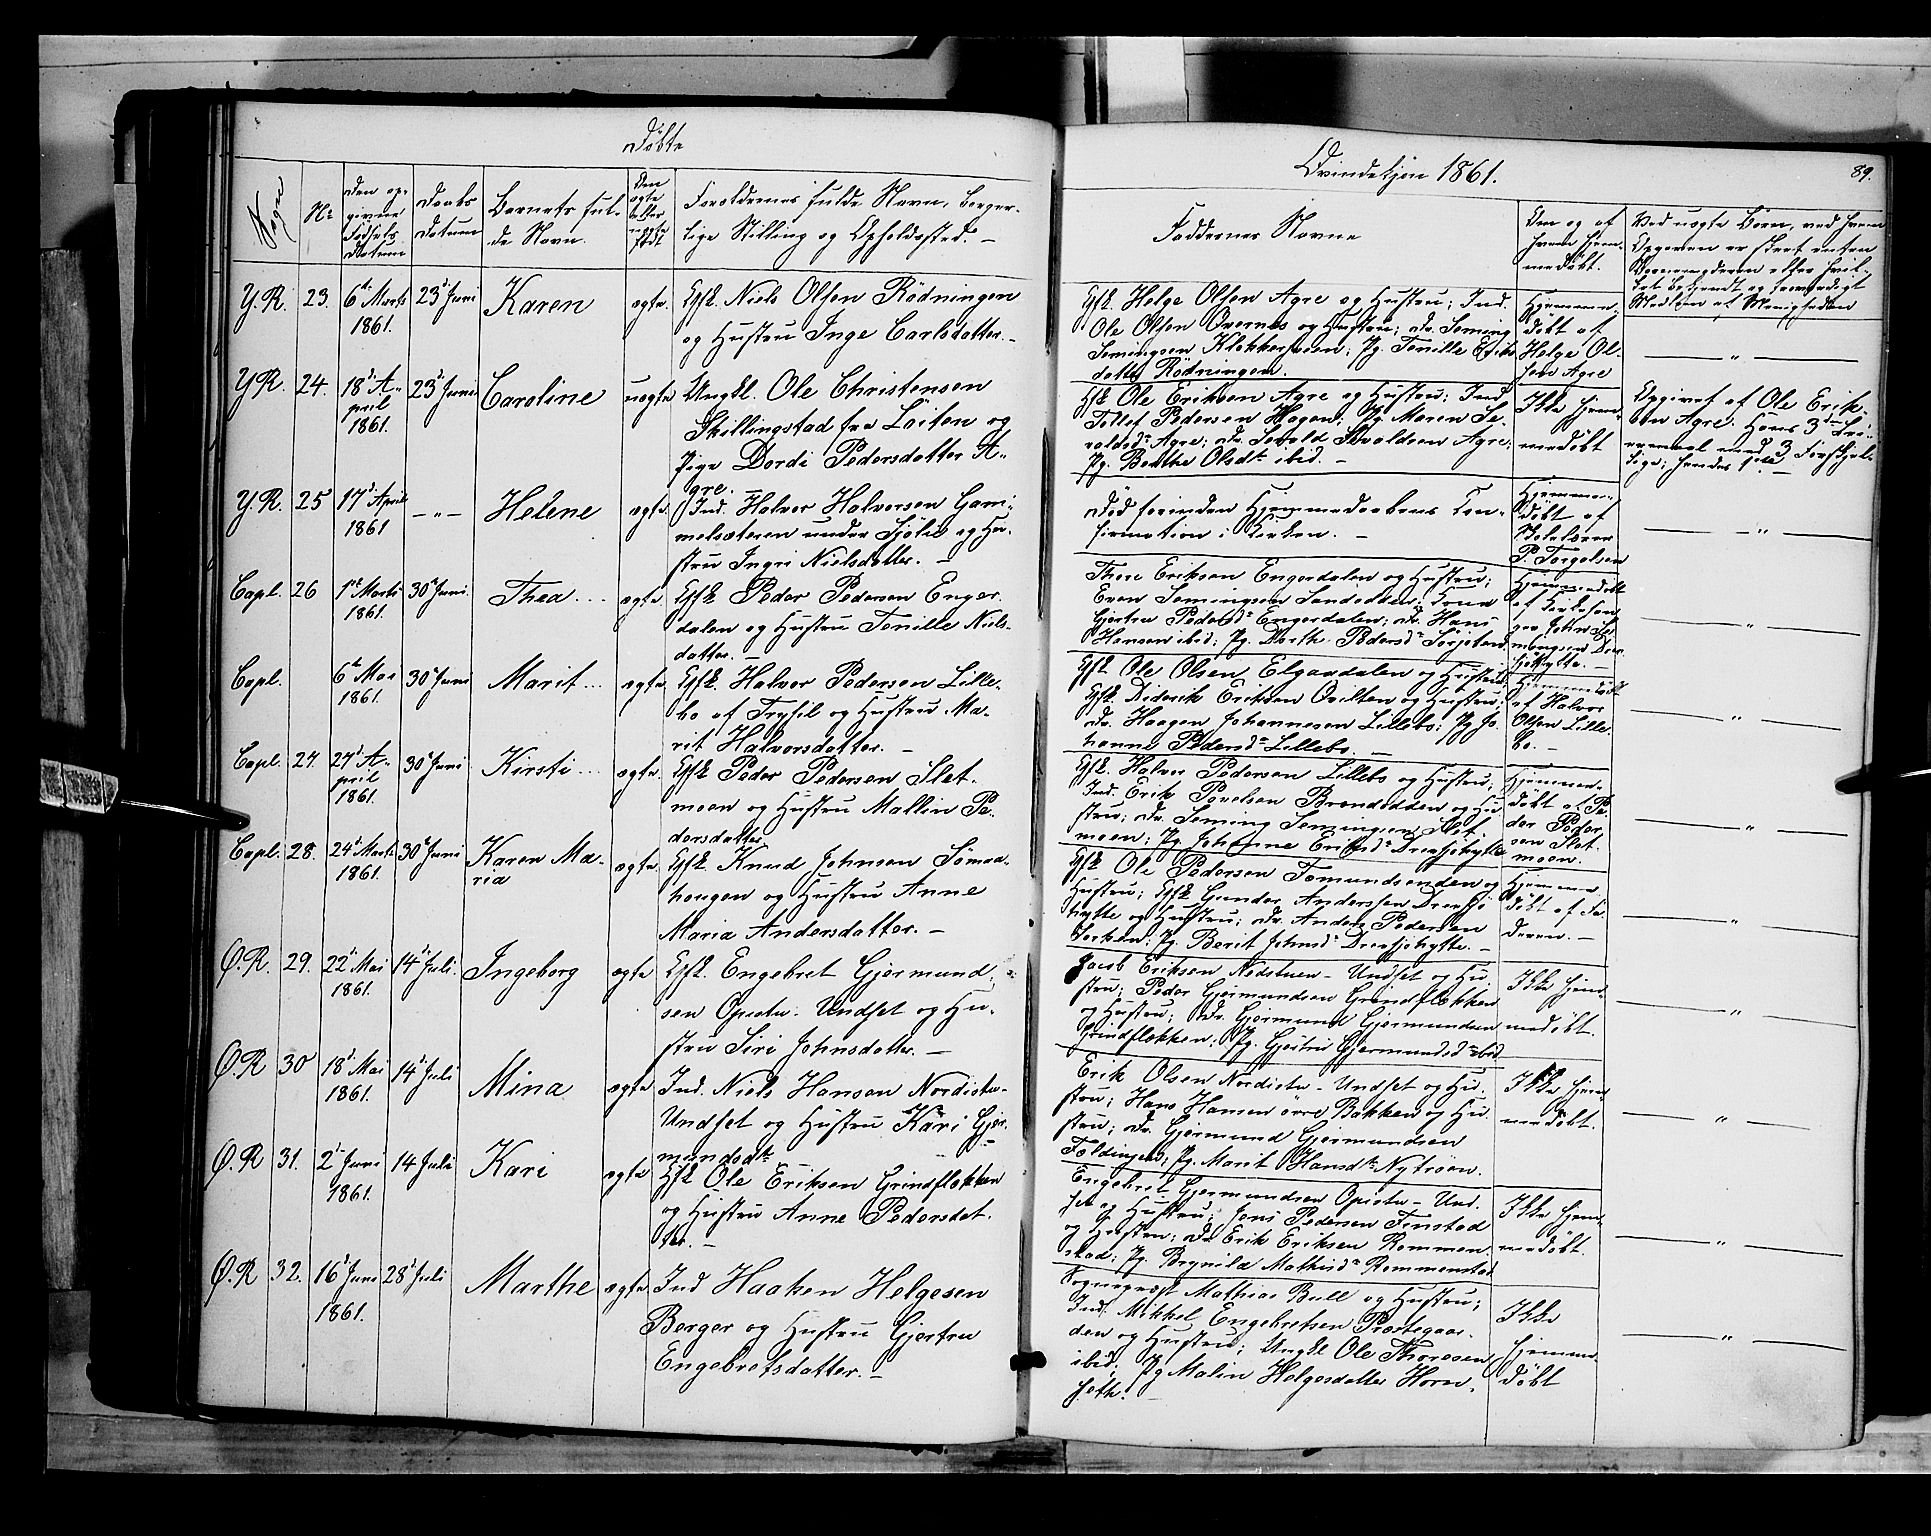 Døbte
Qvindekjøn 1861.
89.
Sogne
No
Den op-
givne
Fødsels
Datum
Daabs
Datum
Barnets ful-
de Navn.
Den
ægte
eller
uægte
født
Forældrenes fulde Navn, borger-
lige Stilling og Opholdssted. –
Faddernes Navne
Om og af
hvem hjem-
medøbt.
Ved uægte Børn, ved hvem
Opgaven er skeet enten
Medlem af Menigheden
Y.R. 23. 6te Marts 23d Juni Karen ægte Gft. Niels Olsen Rødningen
1861. og Hustru Inge Carlsdatter. –
Gft. Helge Olsen Agre og Hustru; Ind.
Ole Olsen Øvernes og Hustru; Dr. Seming
Semingsen Klokkerhaugen; Pg. Tonille Eriks
datter Rødningen.
Hjemme-
døbt af
Helge Ol-
sen Agre
– " –
Y.R. 24. 18d A- 23d Juni Caroline uægte Ungkl. Ole Christensen
pril
1861.
Skillingstad fra Löiten og
Pige Dordi Pedersdatter A-
gre. –
Gft. Ole Eriksen Agre og Hustru; Ind.
Tollef Pedersen Hagen; Pg. Maren Se-
valdsdr Agre; Dr. Sevald Sevaldsen Agre;
Pg. Berthe Olsdr ibid. –
Ikke hjem-
medøbt
Opgivet af Ole Erik-
sen Agre. Hans 3die Lei-
ermaal med 3 Forskjel-
lige; hendes 1ste
Y.R. 25 17d April – " – Helene ægte Ind. Halvor Halvorsen Gam-
1861 melsæteren under Sjølie og Hu-
stru Ingri Nielsdatter. –
Død forinden Hjemmedaabens Con-
firmation i Kirken. –
Hjemme-
døbt af
Skolelærer
P. Torgalsen
– " –
Capl. 26 1ste Marts 30d Juni. Thea ... ægte Gft. Peder Pedersen Enger-
1861. dalen og Hustru Tonille Niels-
datter. –
Thore Eriksen Engerdalen og Hustru;
Even Semingsen Sundodden; Kone
Gjertru Pedersdr Engerdalen; Dr. Hans
Hansen ibid; Pg. Dorthe Pedersdr Sorjoten
Hjemmedøbt
af Kirkesan-
ger John Se-
mingsen Drev-
sjøhytte. –
"
Capl. 6te Mai 30d Juni Marit ... ægte Gft. Halvor Pedersen Lille-
1861. bo af Trysil og Hustru Ma-
rit Halvorsdatter. –
Gft. Ole Olsen Elgaadalen og Hustru;
Gft. Diderik Eriksen Qvilten og Hustru;
Dr. Haagen Johannesen Lillebo; Pg. Jo-
hanne Pedersdr Lillebo. –
Hjemmedøbt
af Halvor
Olsen Lille-
bo. –
– " –
Capl. 27. 27d A- 30d Juni Kirsti ... ægte Gft. Peder Pedersen Slet-
pril
1861.
moen og Hustru Mallin Pe-
dersdatter
Gft. Halvor Pedersen Lillebo og Hustru;
Ind. Erik Povelsen Brændodden og Hu-
stru; Dr. Seming Semingsen Slet-
moen; Pg. Johanne Eriksdr Drevsjøhytte
Hjemme-
døbt af Pe-
der Peder-
sen Slet-
moen.
– " –
Capl. 28. 24d Marts 30d Juni Karen Ma- ægte Gft. Knud Johnsen Sömaa-
1861. ria
hougen og Hustru Anne
Maria Andersdatter. –
Gft. Ole Pedersen Femundsenden og
Hustru; Gft. Gunder Anderssen Drevsjø-
hytte og Hustru; Dr. Anders Pedersen
Sorken; Pg. Berit Johnsdr Drevsjøhytte. –
Hjemme-
døbt af Fa-
deren. –
– " –
Ø.R. 29. 22d Mai 14d Juli. Ingeborg ægte Gft. Engebret Gjermund-
1861. sen Opistu - Undset og Hu-
stru Siri Johnsdatter. –
Jacob Eriksen Nedstuen - Undset og Hu-
stru; Peder Gjermundsen Grindflekken
og Hustru; Dr. Gjermund Gjermundsen
Grindflekken; Pg. Gjertru Gjermundsdr ibid
Ikke hjem-
medøbt.
– " –
Ø.R 30 18d Mai 14d Juli Mina ægte Ind. Niels Hansen Nordistu-
1861. Undset og Hustru Kari Gjer-
mundsdr
Erik Olsen Nordistu - Undset og Hu-
stru; Hans Hansen øvre Bakken og Hu-
stru; Dr. Gjermund Gjermundsen
Foldingen; Pg. Marit Hansdr Nytröen.
Ikke hjem-
medøbt.
– " –
Ø.R 31. 2d Juni 14 Juli Kari ægte Gft. Ole Eriksen Grindflekken
1861. og Hustru Anne Pedersdat-
ter. –
Engebret Gjermundsen Opistu - Und-
set og Hustru; Jens Pedersen Finstad
og Hustru; Dr. Erik Eriksen Rommen-
stad; Pg. Brynild Mathisdr Rommenstad
Ikke hjem-
medøbt.
– " –
Ø.R 32. 16d Juni 28d Juli Marthe ægte Ind Haaken Helgesen
1861. Berger og Hustru Gjertru
Engebretsdatter. –
Sognepræst Mathias Bull og Hustru;
Ind. Mikkel Engebretsen Præstegaar-
den og Hustru; Ungkl Ole Thoresen
ibid. Pg Malin Helgesdatter Horn-
seth. –
Ikke
hjemme-
døbt
– " –